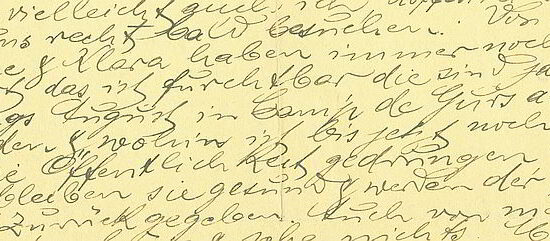 vielleicht auch ich hoffen. Von
uns recht bald besuchen.
e & Klara haben immer noch
das ist furchtbar die sind ja
gs August in Camp de Gurs a
den & wohin ist bis jetzt noch
e Öffentlichkeit gedrungen
bleiben sie gesund & werden der
zurückgegeben. Auch von me
nichts.